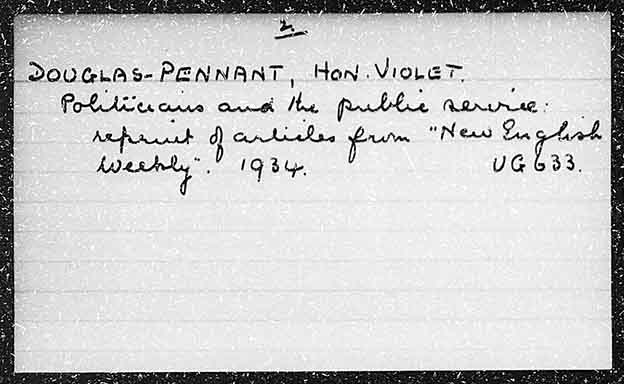 2.
DOUGLAS-PENNANT, HON. VIOLET.
Politicians and the public service:
reprint of articles from "New English
Weekly". 1934. UG633.